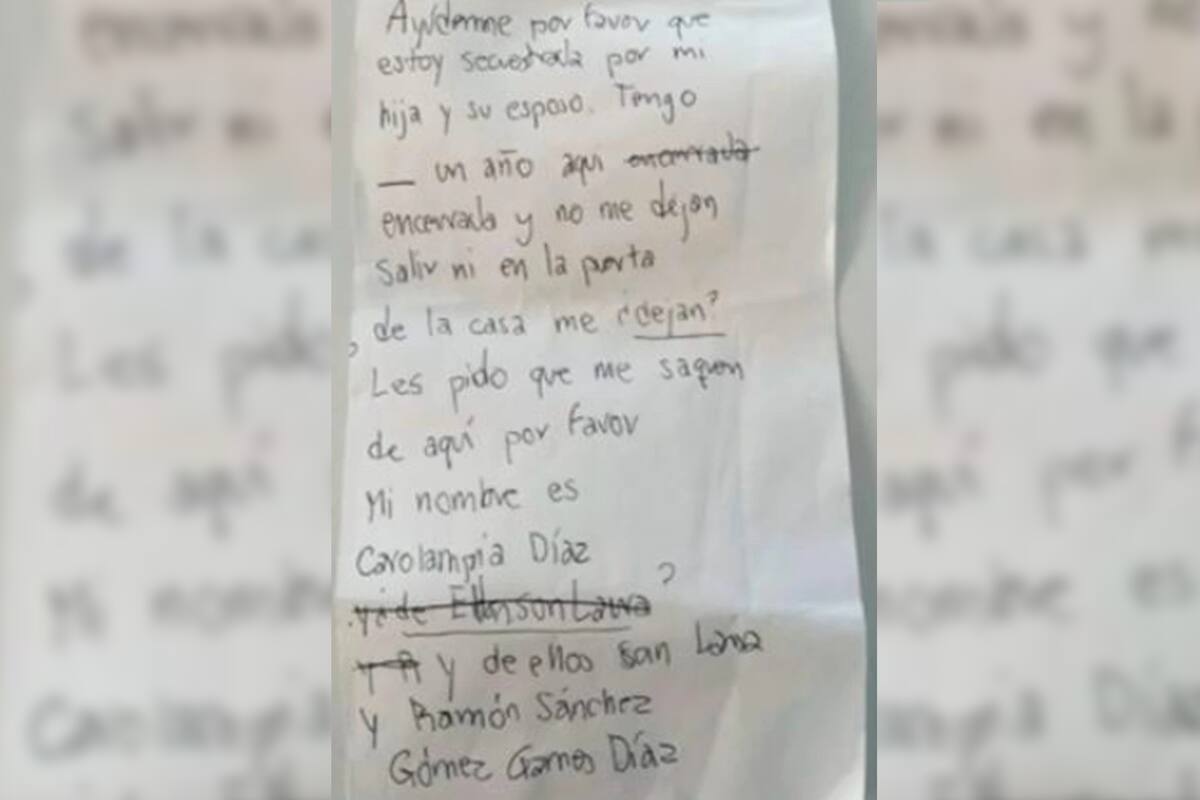 Ayúdenme por favor que
estoy secuestrada por mi
hija y su esposo. Tengo
_ un año aqui encerrada
encerrada y no me dejan
Salir ni en la porta
de la casa me ¿dejan?
Les pido que me saquen
de aquí por favor
Mi nombre es
Carolampia Díaz
?
y de ellos son
y Ramón Sánchez
Gómez Díaz